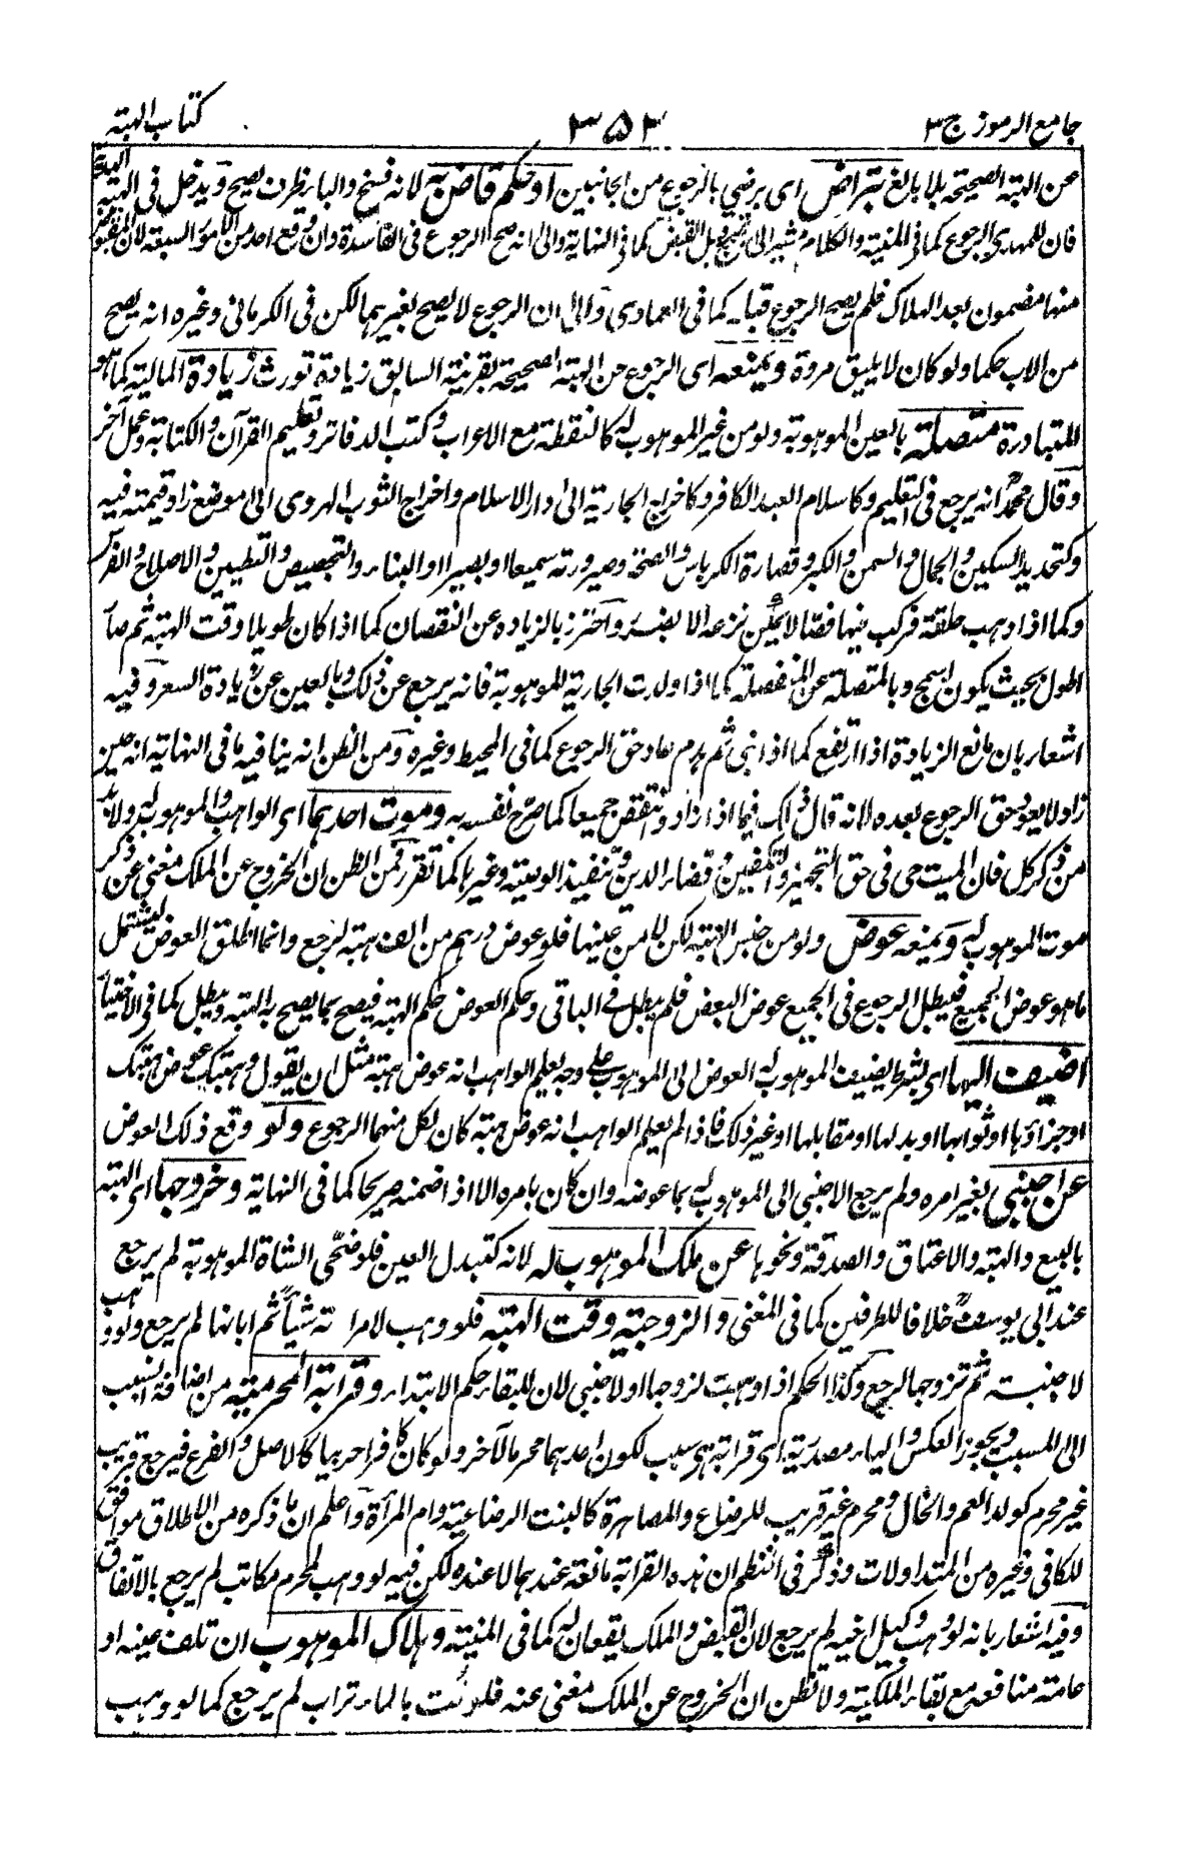 جامع الرموز ج ٣
٣٥٣
كتاب الهبة
عن الهبة الصحيحة بلا بالغ بتراض اى يرضى بالرجوع من الجانبين او حكم قاض به لانه فسخ والباء ظرف يصح ويدخل فى الهبة الهدية
فان للمهدى الرجوع كما فى المنية والكلام مشير الى قبل القبض كما فى النهاية والى انه صح الرجوع فى الفاسدة وان وقع احد من الامور السبعة لان المقبوض
منها مضمون بعد الهلاك فلم يصح الرجوع قبله كما فى العمادى والى ان الرجوع لا يصح بغيرهما لكن فى الكرمانى وغيره انه يصح
من الاب حكما ولو كان لا يليق مروة ويمنعه اى الرجوع عن الهبة الصحيحة بقرينة السابق زيادة تورث زيادة المالية كما هو
المتبادرة متصلة بالعين الموهوبة ولو من غير الموهوب له كالنقطة مع الاعراب وكتب الدفاتر وتعليم القرآن والكتابة وعمل آخر
وقال محمد انه يرجع فى التعليم وكاسلام العبد الكافر وكاخراج الجارية الى دار الاسلام واخراج الثوب الهروى الى موضع زاد قيمته فيه
وكتحديد السكين والجمال والسمن والكبر وقصارة الكرباس والصحة وصيرورته سميعا او بصيرا والبناء والتجصيص والتطيين والاصلاح والغرس
وكما اذا وهب حلقة فركب فيها فصا لا يمكن نزعه الا بضرر واحترز بالزيادة عن النقصان كما اذا كان طويلا وقت الهبة ثم صار
اطول بحيث يكون اسمج وبالمتصلة عن المنفصلة كما اذا ولدت الجارية الموهوبة فانه يرجع عن ذلك وبالعين عن زيادة السعر وفيه
اشعار بان مانع الزيادة اذا ارتفع كما اذا بنى ثم هدم عاد حق الرجوع كما فى المحيط وغيره ومن الظن انه ينافيه ما فى النهاية انه حين
زاد لا يعود حق الرجوع بعده لانه قال ذلك فيما اذا زاد وانتقص جميعا كما صرح نفسه به وموت احدهما اى الواهب والموهوب له ولا بد
من ذكر كل فان الميت حى فى حق التجهيز والتكفين وقضاء الدين وتنفيذ الوصية وغيرها كما تقرر فمن الظن ان الخروج عن الملك مغنى عن ذكر
موت الموهوب له ويمنعه عوض ولو من جنس الهبة لكن لا من عينها فلو عوض درهم من الف هبة لرجع وانما اطلق العوض ليشتمل
ما هو عوض الجميع فيبطل الرجوع فى الجميع عوض البعض فلم يبطل فى الباقى وحكم العوض حكم الهبة فيصح بما يصح به الهبة ويبطل كما فى الاختيار
اضيف اليها اى بشرط يضيف الموهوب له العوض الى الموهوب على وجه يعلم الواهب انه عوض هبته مثل ان يقول وهبتك عوض هبتك
او جزاؤها او ثوابها او بدلها او مقابلها او غير ذلك فاذا لم يعلم الواهب انه عوض هبته كان لكل منهما الرجوع ولو وقع ذلك العوض
عن اجنبى بغير امره ولم يرجع الاجنبى الى الموهوب له بما عوضه وان كان بامره الا اذا ضمنه صريحا كما فى النهاية وخروجها اى الهبة
بالبيع والهبة والاعتاق والصدقة ونحوها عن ملك الموهوب له لانه كتبدل العين فلو ضحى الشاة الموهوبة لم يرجع
عند ابى يوسف خلافا للطرفين كما فى المغنى والزوجية وقت الهبة فلو وهب لامراته شيأ ثم ابانها لم يرجع ولو وهب
لاجنبية ثم تزوجها لرجع وكذا الحكم اذا وهبت لزوجها او لاجنبى لان للبقاء حكم الابتداء وقرابة المحرمية من اضافة السبب
الى المسبب ويجوز العكس والياء مصدرية اى قرابة هى سبب لكون احدهما محرما لآخر ولو كان كافرا حربيا كالاصل والفرع فيرجع قريب
غير محرم كولد العم والخال ومحرم غير قريب للرضاع والمصاهرة كالبنت الرضاعية وام المرأة واعلم ان ما ذكره من الاطلاق موافق
للكافى وغيره من المتداولات وذكر فى النظم ان هذه القرابة مانعة عندهما لا عنده لكن فيه لو وهب لمحرم مكاتب لم يرجع بالاتفاق
وفيه اشعار بانه لو وهب وكيل اخيه لم يرجع لان القبض والملك يقعان له كما فى المنية وهلاك الموهوب ان تلف عينه او
عامة منافعه مع بقاء الملكية ولا تظن ان الخروج عن الملك مغنى عنه فلو بالماء تراب لم يرجع كما لو وهب